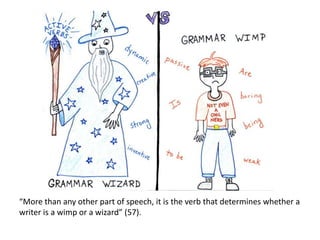 VS
ACTIVE
VERBS
dynamic
creative
strong
inventive
GRAMMAR WIZARD
GRAMMAR WIMP
passive
Are
Is
boring
NOT EVEN
A
COOL
NERD
being
to be
weak
“More than any other part of speech, it is the verb that determines whether a
writer is a wimp or a wizard” (57).